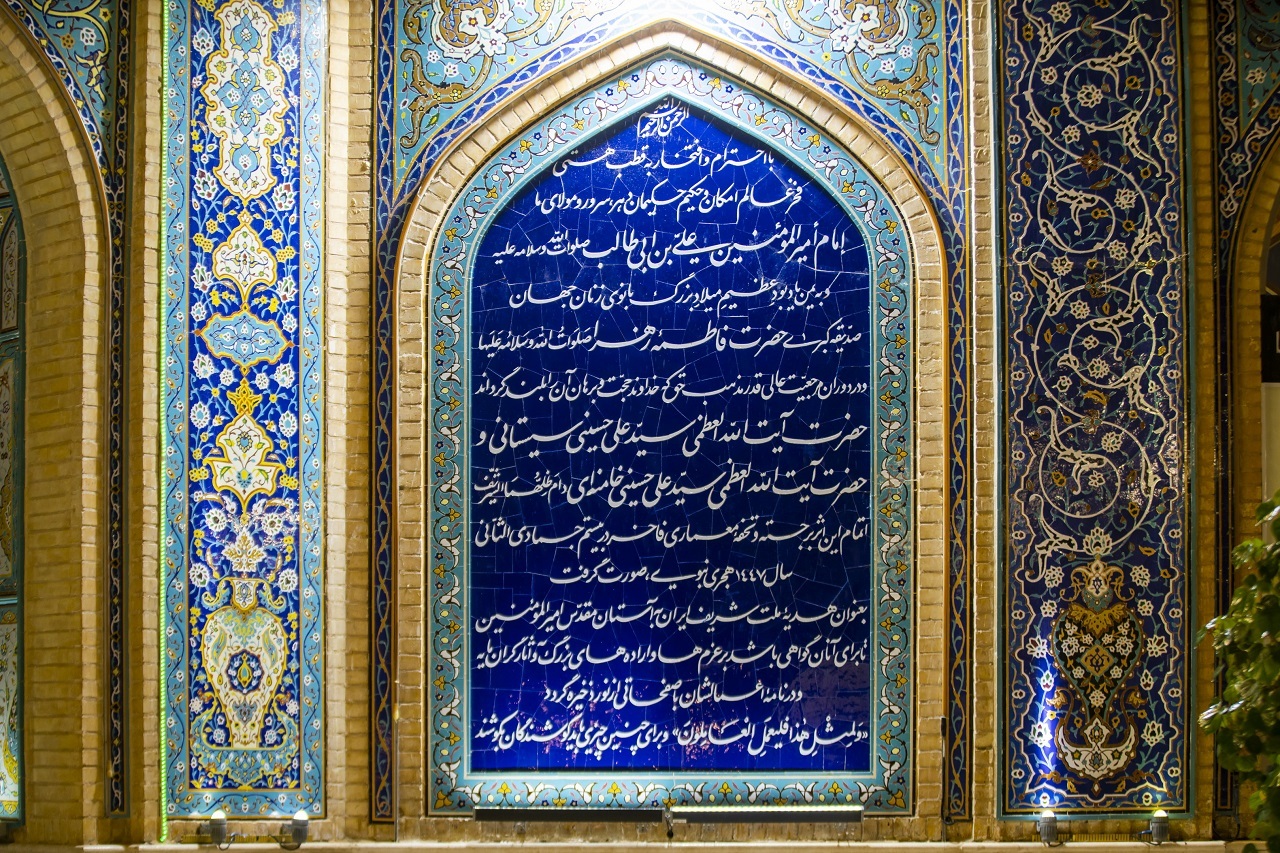 بسم الله الرحمن الرحیم
با احترام و افتخار به قطب هستی
فخر عالم امکان و حکیم حکیمان بر، سرور و مولای ما
إمام أمیر المؤمنین علیّ بن ابی طالب صلوات الله و سلامه علیه
و به یُمن یادبود عظیم میلاد بزرگ بانوی زنان جهان
صدّیقه کبری حضرت فاطمهٔ زهرا صلوات الله و سلامه علیها
و در دوران مرجعیّت عالی قدر مذهب حقّ که خداوند حجّت و برهان آن را بلند گرداند
حضرت آیت الله العظمی سیّد علی حسینی سیستانی و
حضرت آیت الله العظمی سیّد علی حسینی خامنه‌ای دام ظلّهما الشریف
اتمام این اثر برجسته و تحفهٔ معماری فاخر در بیستم جمادی الثانی
سال ۱۴۴۷ هجری نبوی، صورت گرفت
بعنوان هدیهٔ ملت شریف ایران به آستان مقدّس امیر المؤمنین
تا برای آنان گواهی باشد بر عزم ها و اراده های بزرگ و آثار گران مایه
و در نامهٔ اعمالشان با صفحاتی از نور ذخیره گردد
«ولمثل هذا فلیعمل العاملون» و برای چنین چیزی باید کوشندگان بکوشند